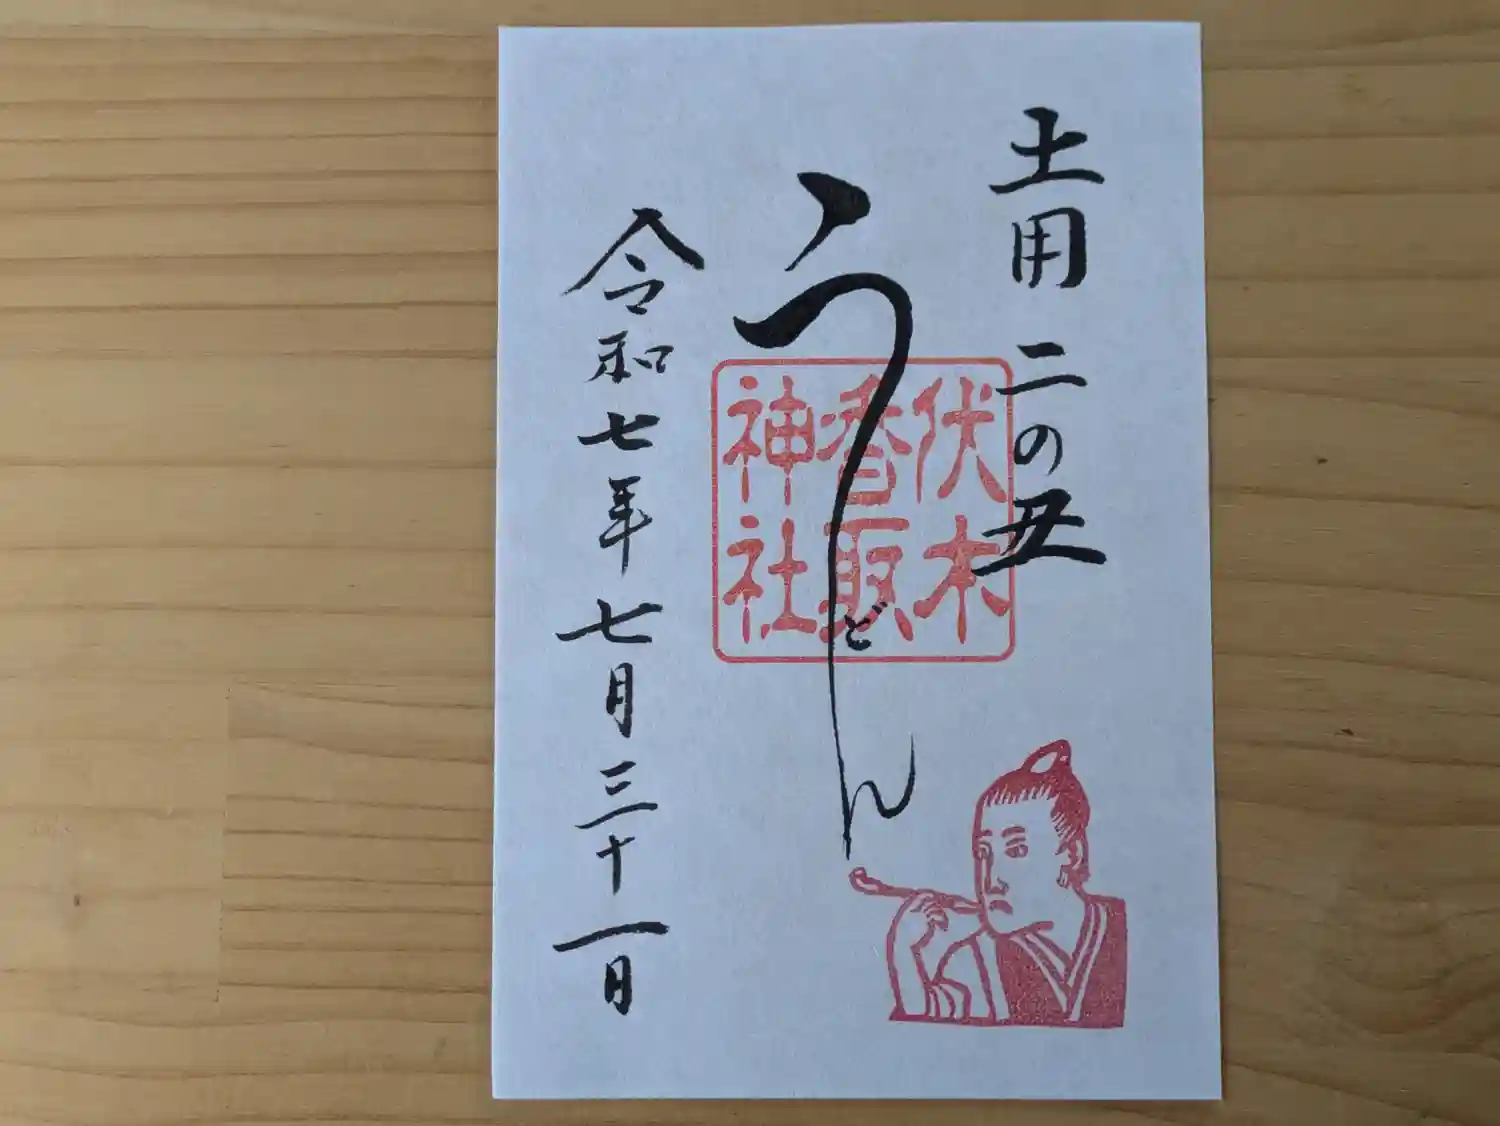 土用 二の丑
うどん
伏木
香取
神社
令和七年七月三十一日